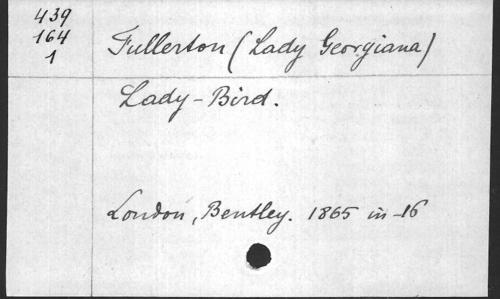 439
164
1
Fullerton (Lady Georgiana)
Lady-Bird.
London, Bentley. 1865 in-16